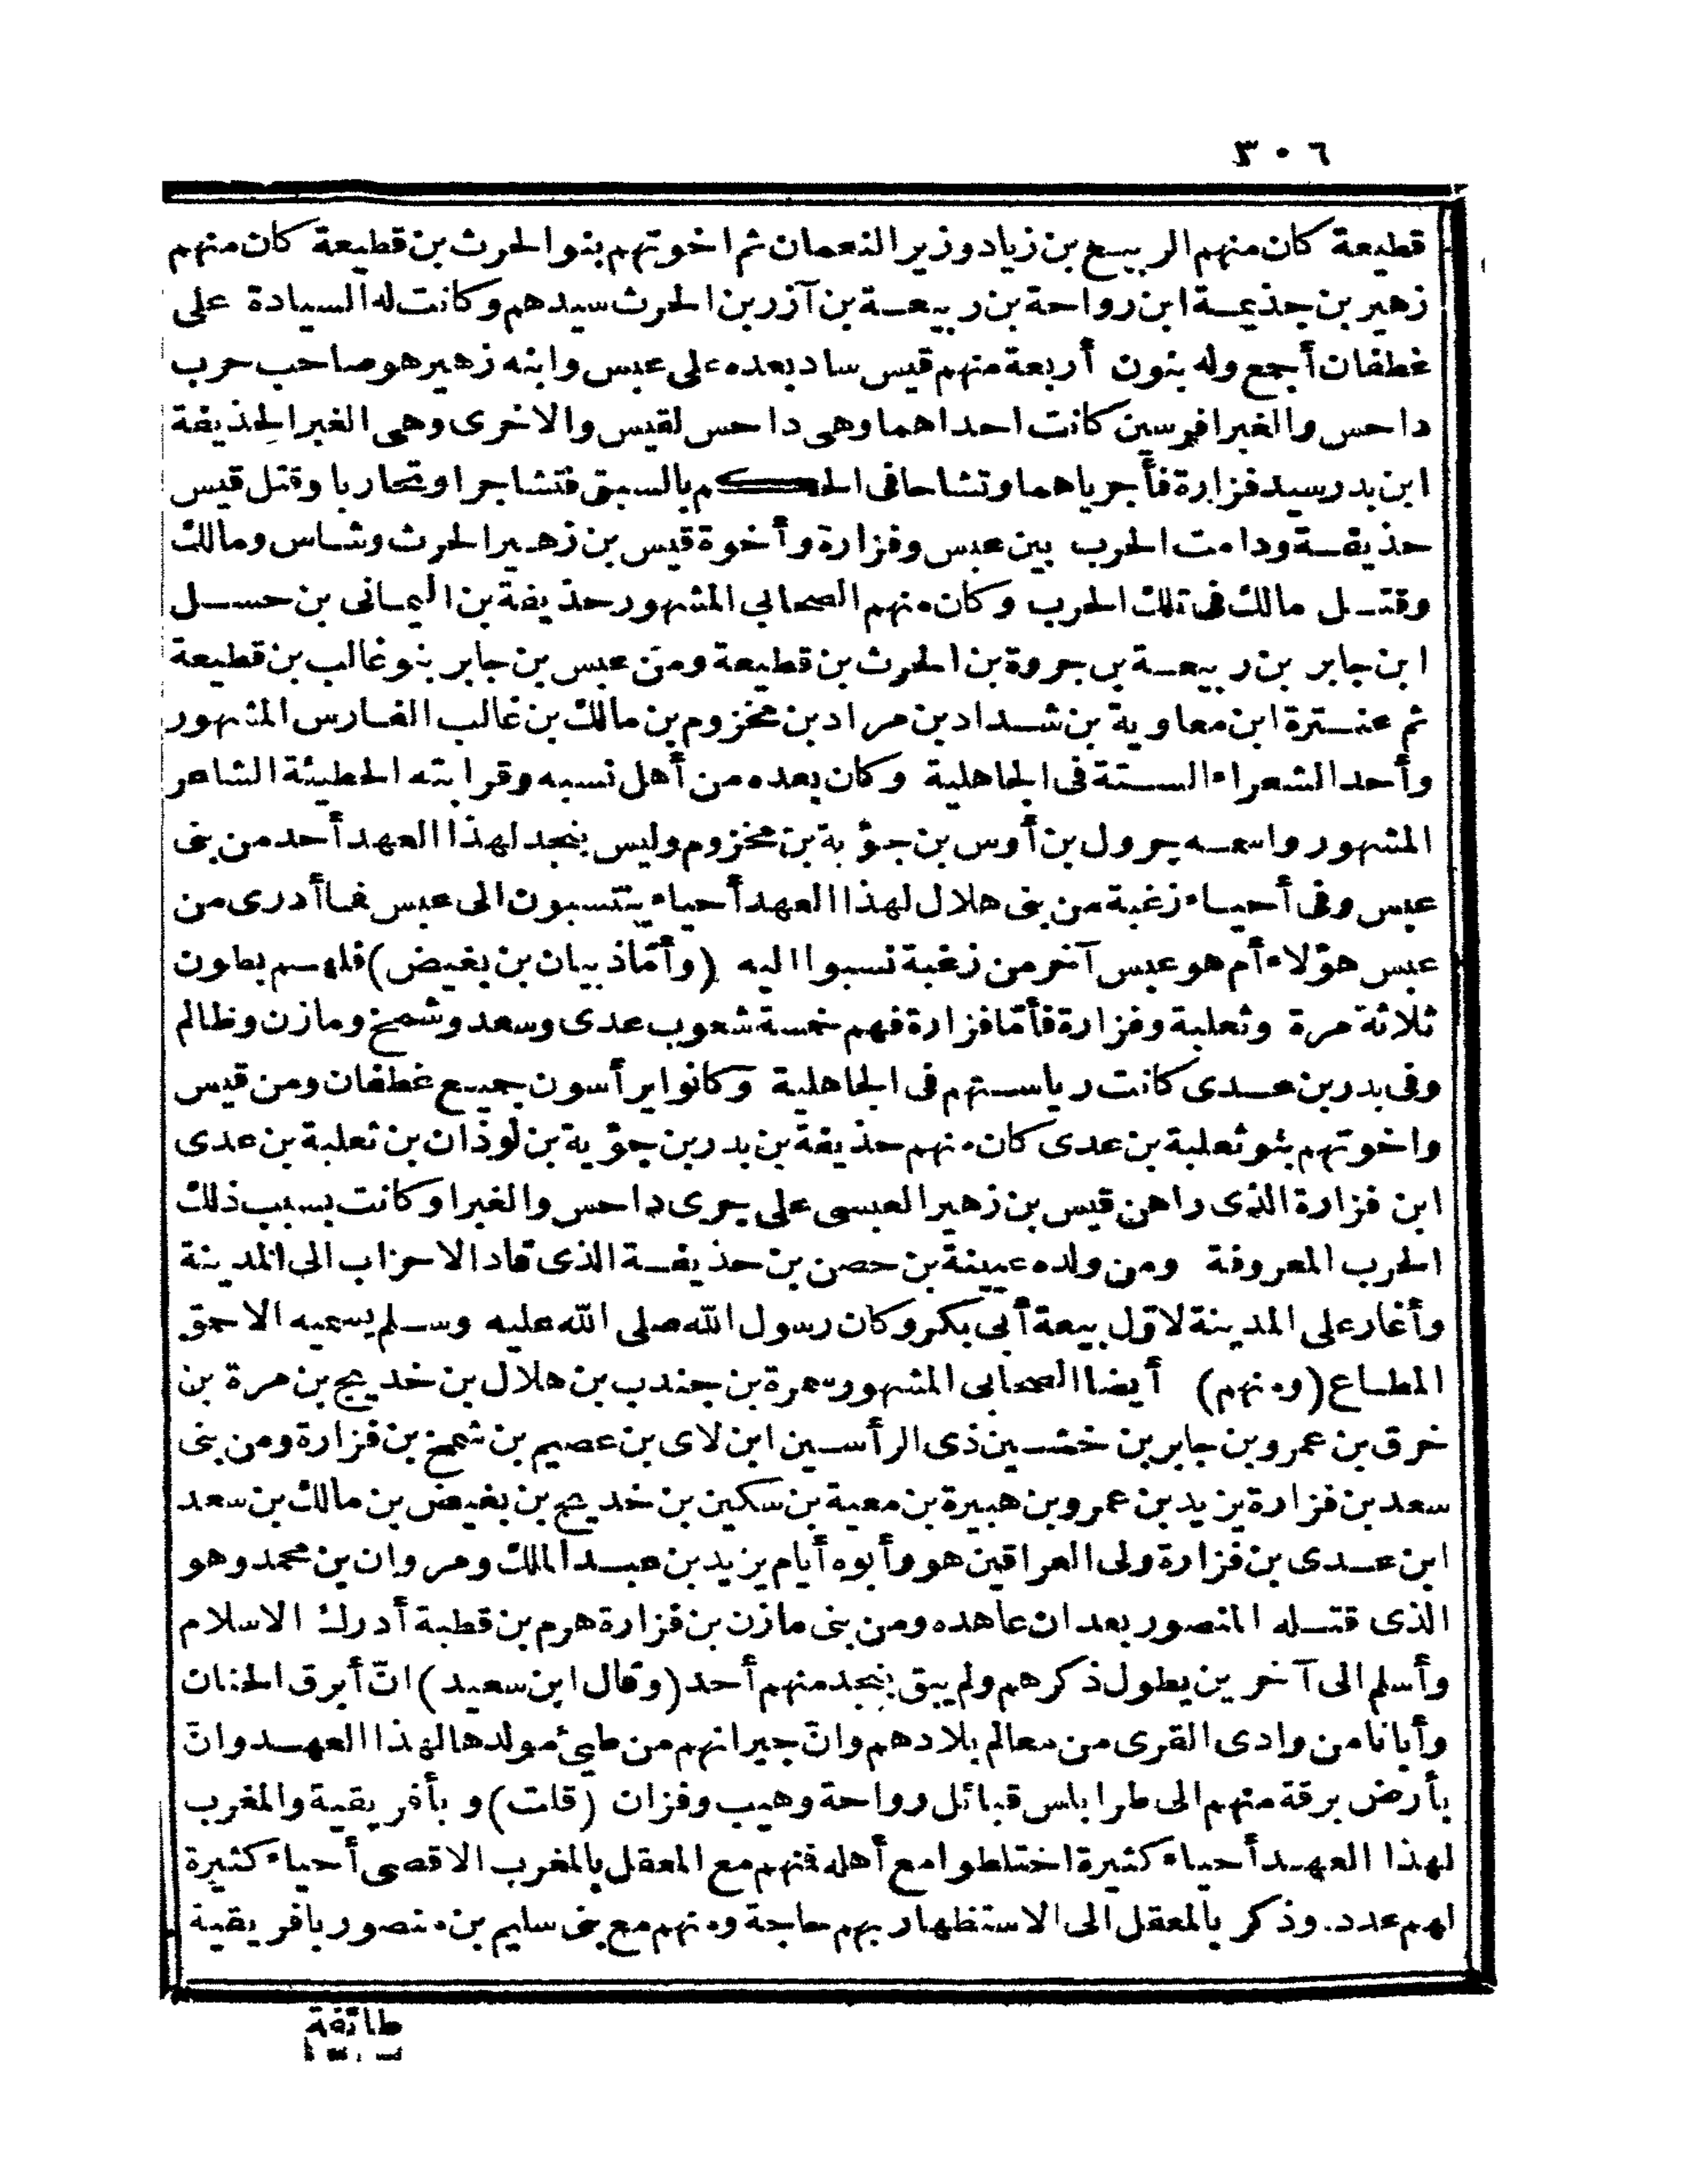 ٣٠٦
قطيعة كان منهم الربيع بن زياد وزير النعمان ثم اخوتهم بنو الحرث بن قطيعة كان منهم
زهير بن جذيمة ابن رواحة بن ربيعة بن آزر بن الحرث سيدهم وكانت له السيادة على
غطفان أجمع وله بنون أربعة منهم قيس ساد بعده على عبس وابنه زهير هو صاحب حرب
داحس والغبرا فرسين كانت احداهما وهى داحس لقيس والاخرى وهى الغبرا لحذيفة
ابن بدر سيد فزارة فأجرياهما وتشاحا فى الحكم بالسبق فتشاجرا وتحاربا وقتل قيس
حذيفة ودامت الحرب بين عبس وفزارة وأخوة قيس بن زهير الحرث وشاس ومالك
وقتل مالك فى تلك الحرب وكان منهم الصحابى المشهور حذيفة بن اليمانى بن حسل
ابن جابر بن ربيعة بن جروة بن الحرث بن قطيعة ومن عبس بن جابر بنو غالب بن قطيعة
ثم عنترة ابن معاوية بن شداد بن مراد بن مخزوم بن مالك بن غالب الفارس المشهور
وأحد الشعراء الستة فى الجاهلية وكان بعده من أهل نسبه وقرابته الحطيئة الشاعر
المشهور واسمه جرول بن أوس بن جؤية بن مخزوم وليس بنجد لهذا العهد أحد من بنى
عبس وفى أحياء زغبة من بنى هلال لهذا العهد أحياء ينتسبون الى عبس فما أدرى من
عبس هؤلاء أم هو عبس آخر من زغبة نسبوا اليه (وأمّا ذبيان بن بغيض) فلهم بطون
ثلاثة مرة وثعلبة وفزارة فأمّا فزارة فهم خمسة شعوب عدى وسعد وشمخ ومازن وظالم
وفى بدر بن عدى كانت رياستهم فى الجاهلية وكانوا يرأسون جميع غطفان ومن قيس
واخوتهم بنو ثعلبة بن عدى كان منهم حذيفة بن بدر بن جؤية بن لوذان بن ثعلبة بن عدى
ابن فزارة الذى راهن قيس بن زهير العبسى على جرى داحس والغبرا وكانت بسبب ذلك
الحرب المعروفة ومن ولده عيينة بن حصن بن حذيفة الذى قاد الاحزاب الى المدينة
وأغار على المدينة لاوّل بيعة أبى بكر وكان رسول الله صلى الله عليه وسلم يسميه الاحمق
المطاع (ومنهم) أيضا الصحابى المشهور سمرة بن جندب بن هلال بن خديج بن مرة بن
خرق بن عمرو بن جابر بن خشين ذى الرأسين ابن لاى بن عصيم بن شمخ بن فزارة ومن بنى
سعد بن فزارة يزيد بن عمرو بن هبيرة بن معية بن سكين بن خديج بن بغيض بن مالك بن سعد
ابن عدى بن فزارة ولى العراقين هو وأبوه أيام يزيد بن عبد الملك ومروان بن محمد وهو
الذى قتله المنصور بعد ان عاهده ومن بنى مازن بن فزارة هرم بن قطبة أدرك الاسلام
وأسلم الى آخرين يطول ذكرهم ولم يبق بنجد منهم أحد (وقال ابن سعيد) انّ أبرق الحنان
وأبانا من وادى القرى من معالم بلادهم وانّ جيرانهم من طيئ مولدها لهذا العهد وانّ
بأرض برقة منهم الى طرابلس قبائل رواحة وهيب وفزان (قلت) وبأفريقية والمغرب
لهذا العهد أحياء كثيرة اختلطوا مع أهله فمنهم مع المعقل بالمغرب الاقصى أحياء كثيرة
لهم عدد. وذكر بالمعقل الى الاستظهار بهم حاجة ومنهم مع بنى سليم بن منصور بافريقية
طائفة